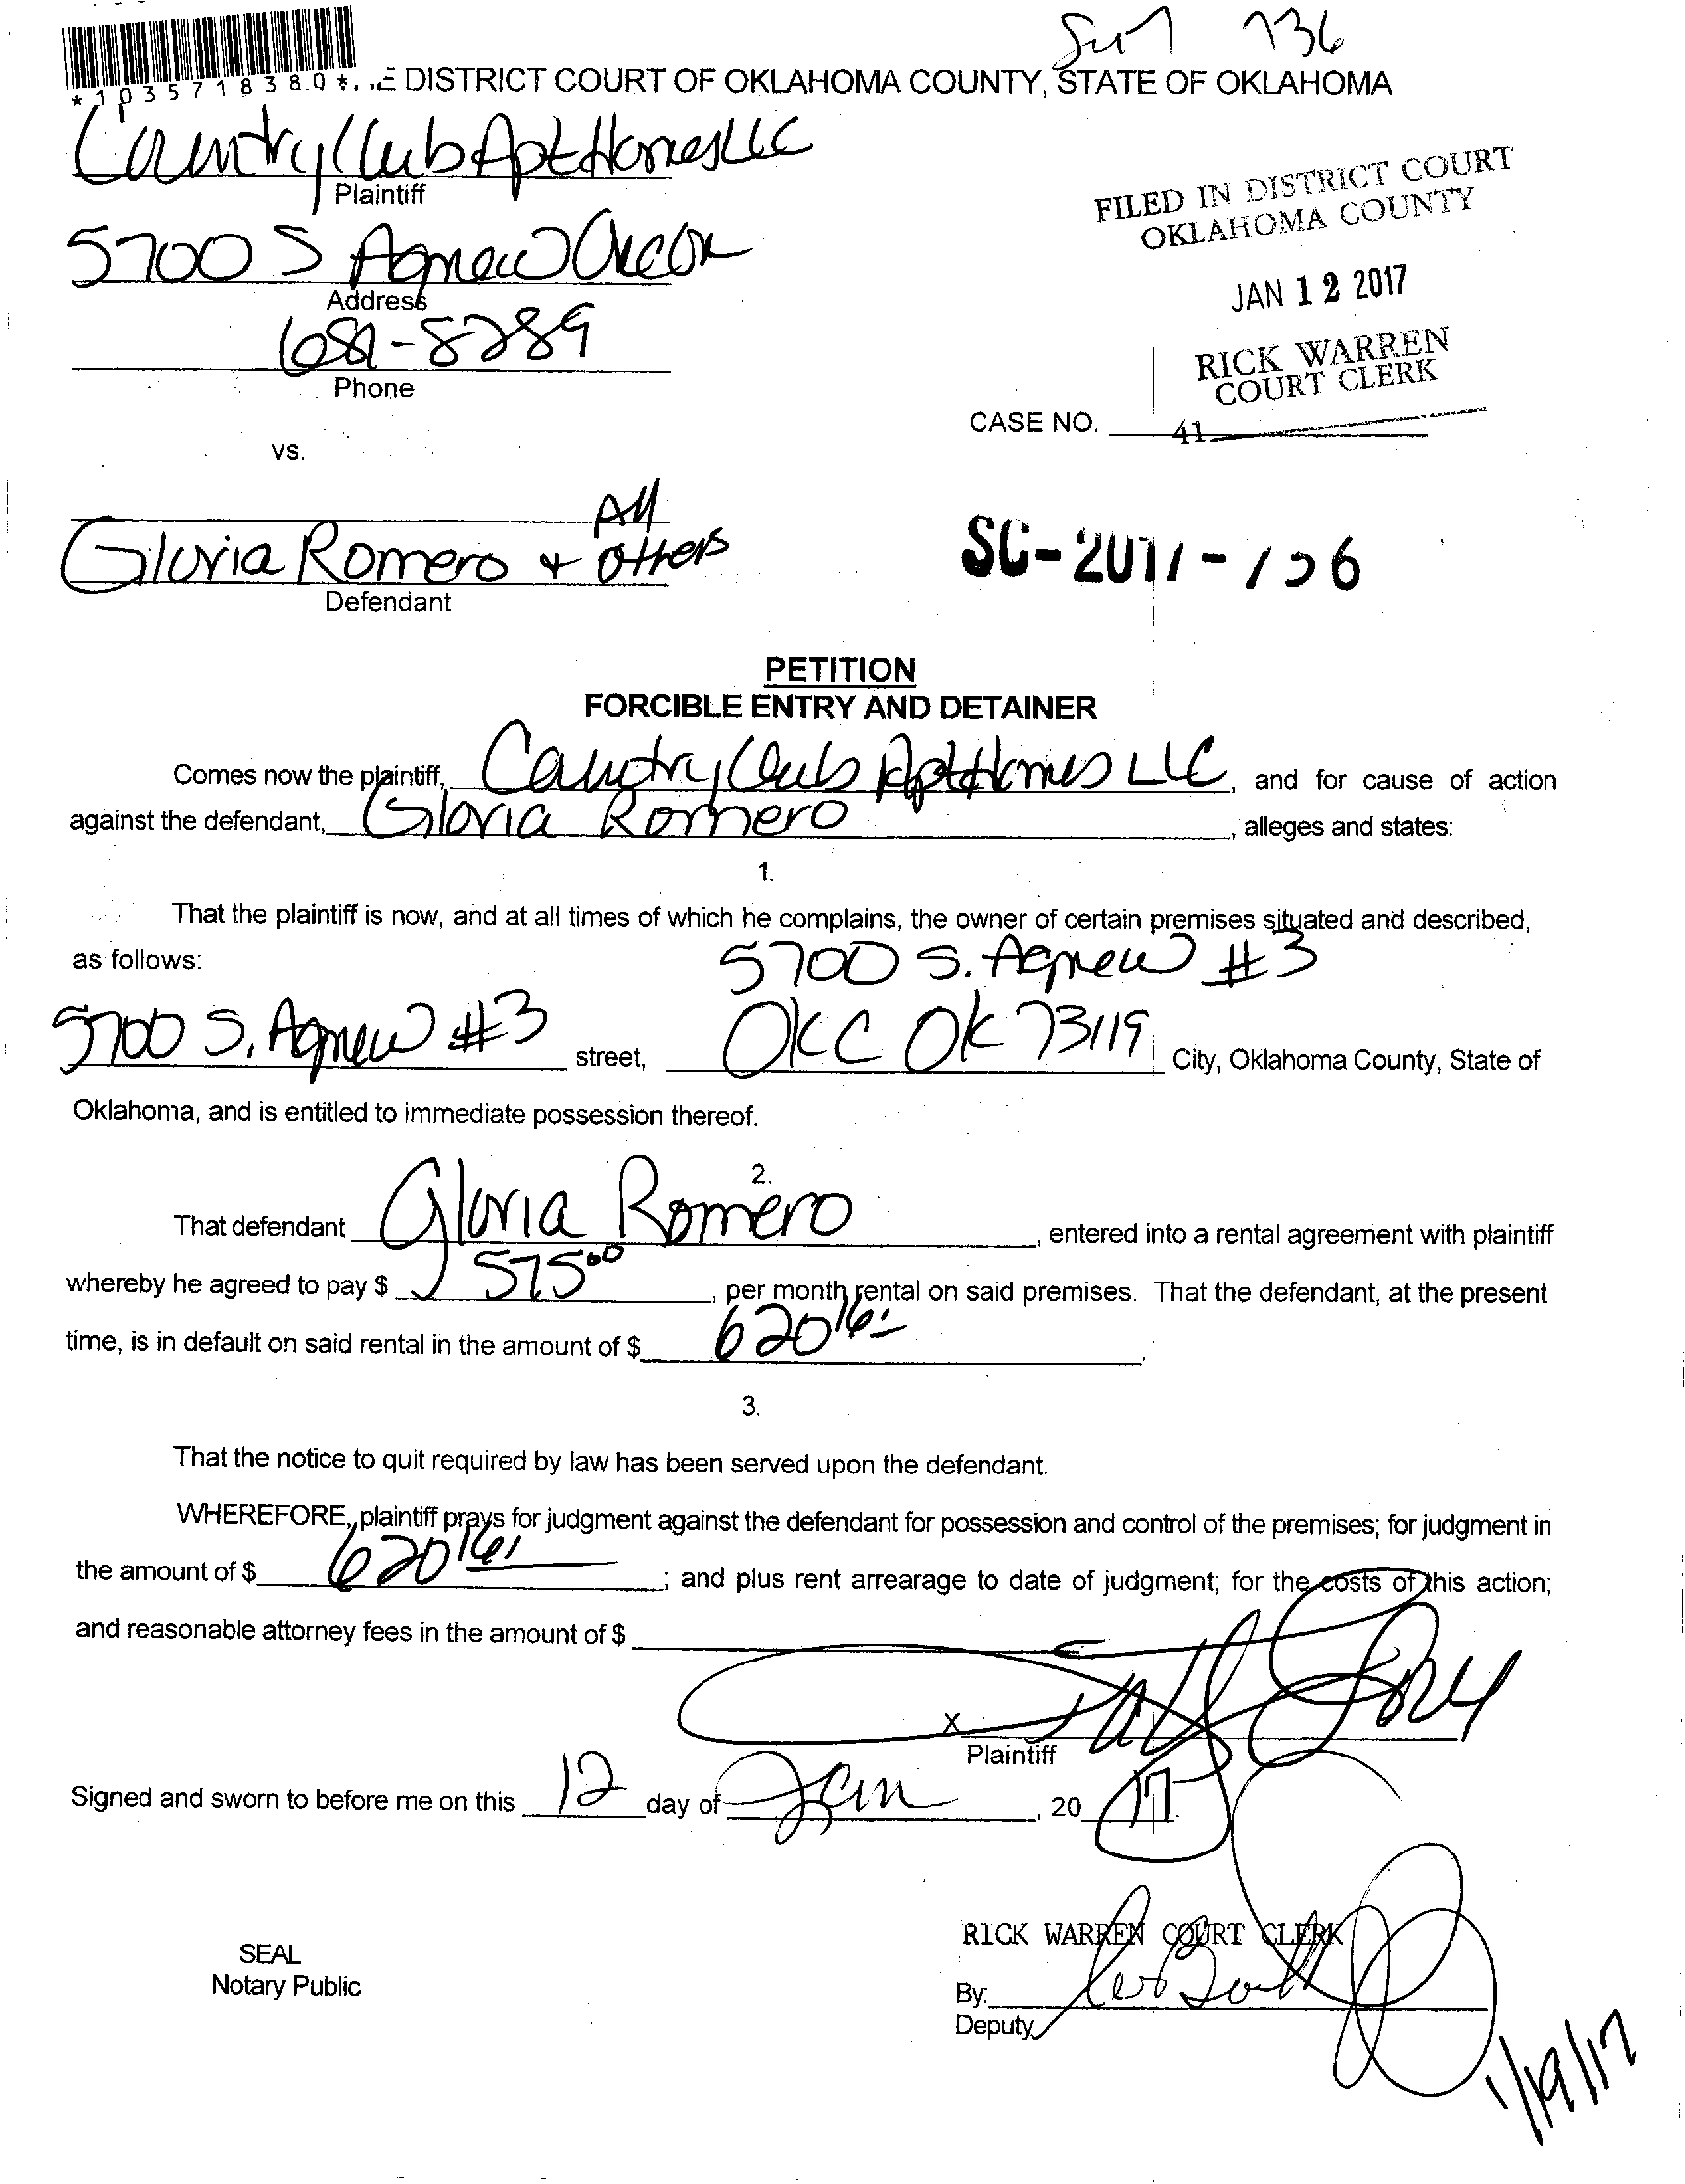 736
*1035718380*
E DISTRICT COURT OF OKLAHOMA COUNTY, STATE OF OKLAHOMA
Country Club Apt Homes LLC
Plaintiff
FILED IN DISTRICT COURT
OKLAHOMA COUNTY
5700 S Agnew
Address
JAN 12 2017
-8289
Phone
RICK WARREN
COURT CLERK
CASE NO.
41
vs.
All
Gloria Romero + others
Defendant
SC-2017-
PETITION
FORCIBLE ENTRY AND DETAINER
Comes now the plaintiff, Country Club Apt Homes LLC, and for cause of action
against the defendant, Gloria Romero, alleges and states:
1.
That the plaintiff is now, and at all times of which he complains, the owner of certain premises situated and described,
as follows: 5700 S. Agnew #3
5700 S. Agnew #3 street, OKC OK 73119 City, Oklahoma County, State of
Oklahoma, and is entitled to immediate possession thereof.
2.
That defendant Gloria Romero, entered into a rental agreement with plaintiff
whereby he agreed to pay $ 575.00, per month rental on said premises. That the defendant, at the present
time, is in default on said rental in the amount of $ 620 16.
3.
That the notice to quit required by law has been served upon the defendant.
WHEREFORE, plaintiff prays for judgment against the defendant for possession and control of the premises; for judgment in
the amount of $ 620 16; and plus rent arrearage to date of judgment; for the costs of this action;
and reasonable attorney fees in the amount of $
X
Plaintiff
Signed and sworn to before me on this 12 day of Jan, 20 17.
RICK WARREN COURT CLERK
SEAL
Notary Public
By:
Deputy
1/19/17